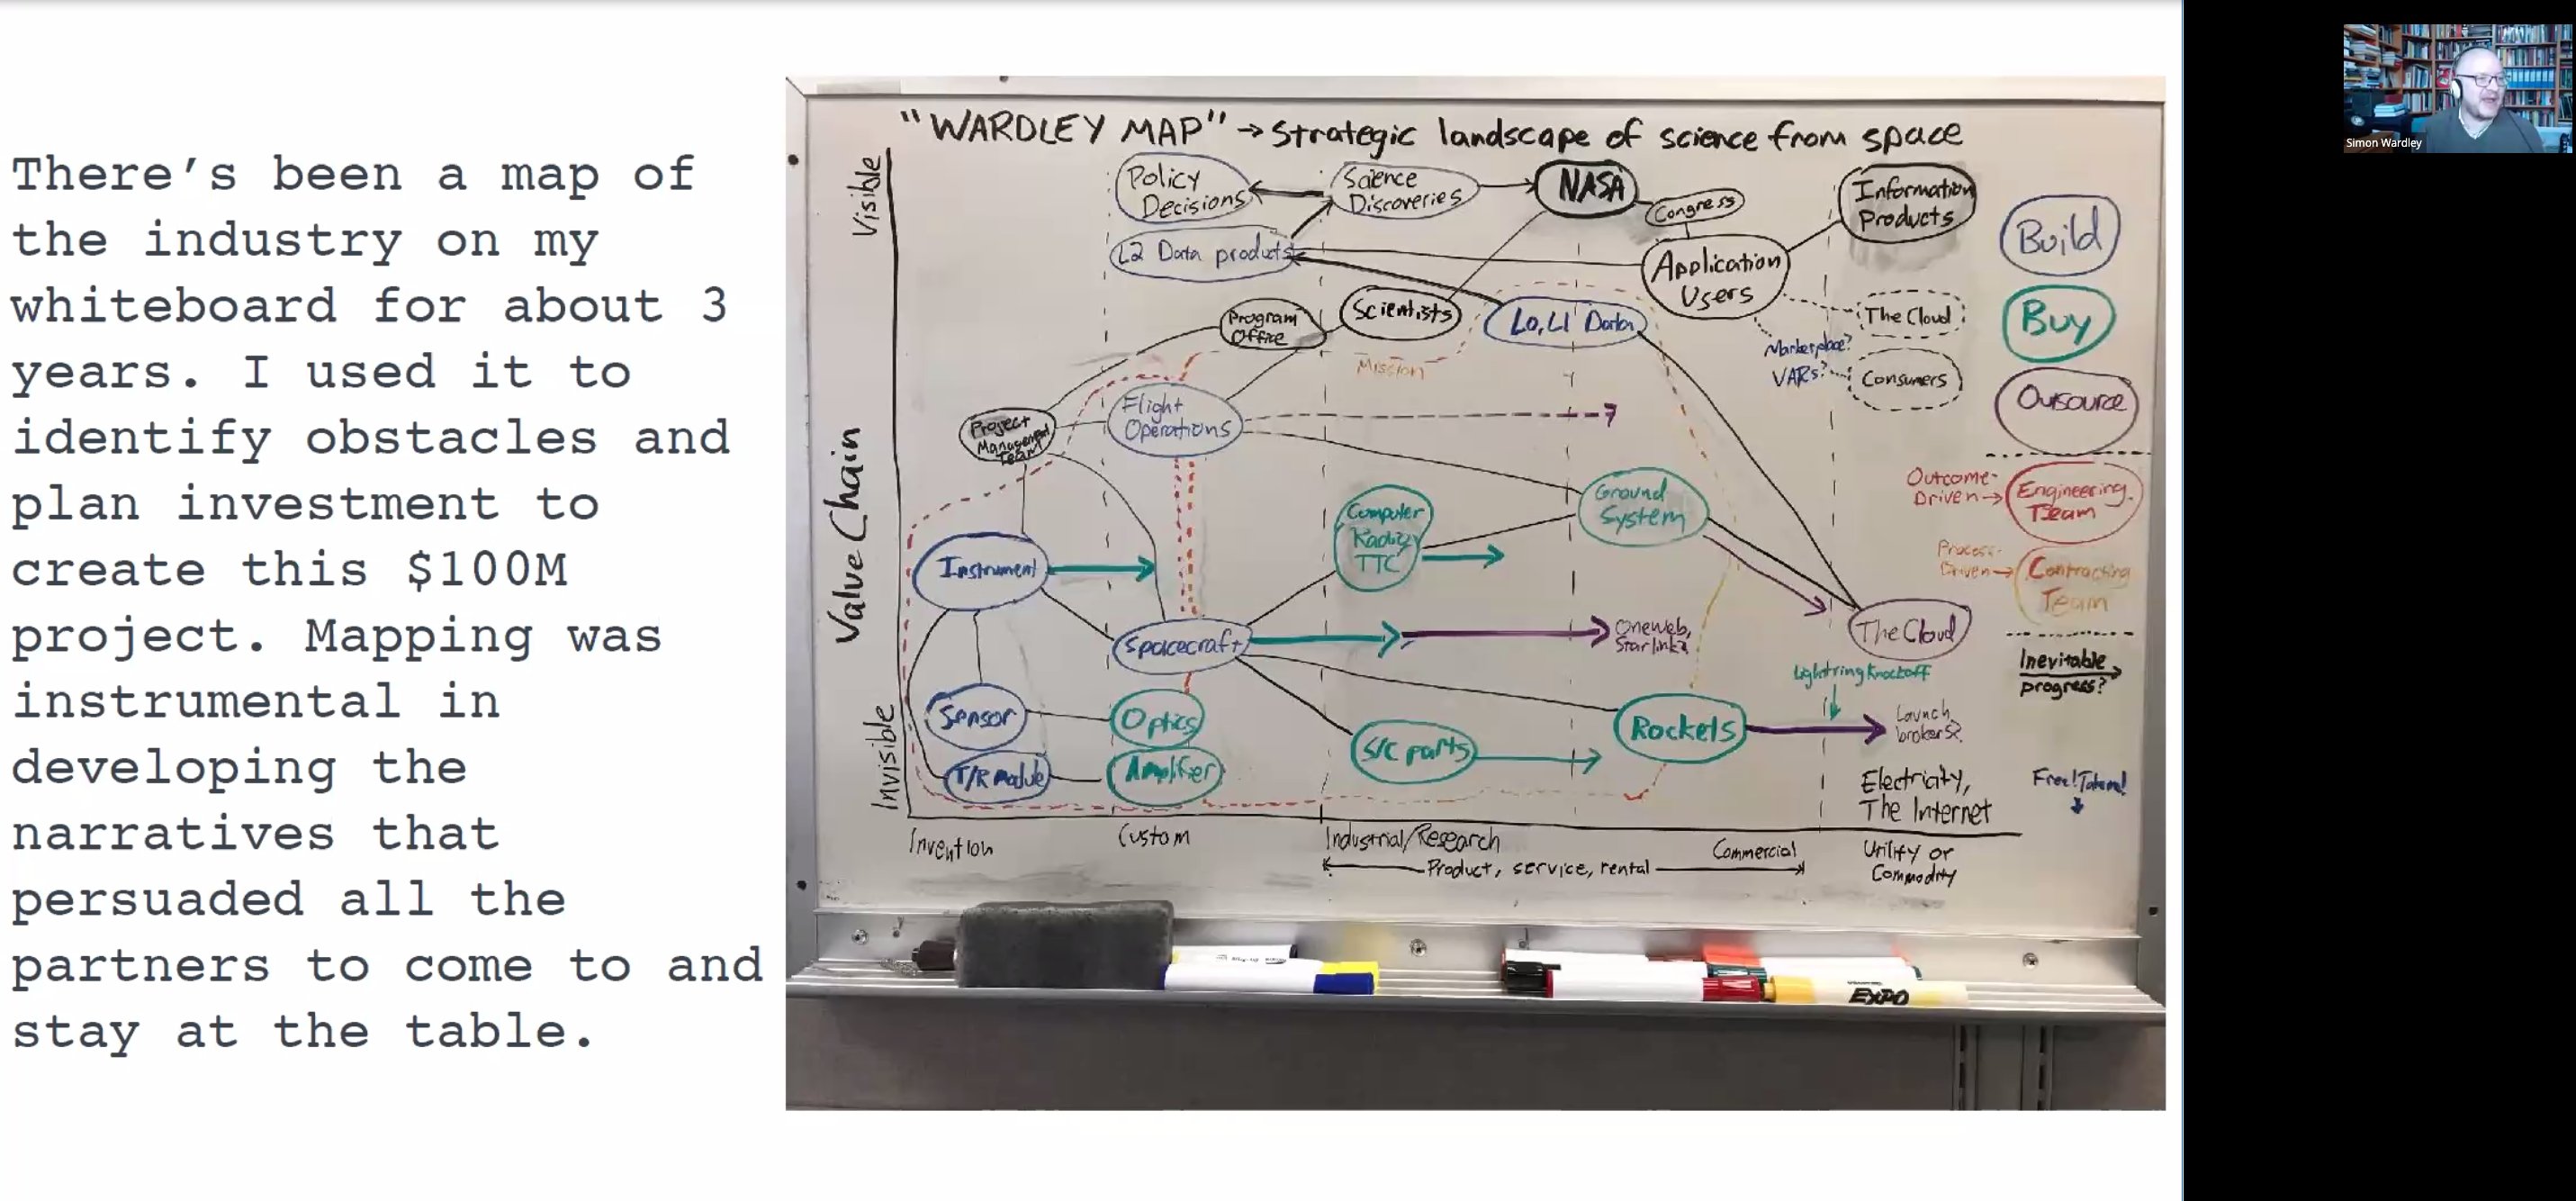 There's been a map of
the industry on my
whiteboard for about 3
years. I used it to
identify obstacles and
plan investment to
create this $100M
project. Mapping was
instrumental in
developing the
narratives that
persuaded all the
partners to come to and
stay at the table.
"WARDLEY MAP" → Strategic landscape of science from space
Visible
Value Chain
Invisible
Policy
Decisions
Science
Discoveries
NASA
Congress
Information
Products
L2 Data products
Application
Users
Program
Office
Scientists
L0, L1 Data
The Cloud
Marketplace?
VARs?
Consumers
Mission
Project
Management
Team
Flight
Operations
Computer
Radio
TTC
Ground
System
Instrument
Spacecraft
Oneweb,
Starlink?
The Cloud
Lightning Knockoff
Sensor
Optics
T/R Module
Amplifier
S/C parts
Rockets
Launch
brokers?
Electricity,
The Internet
Build
Buy
Outsource
Outcome-
Driven →
Engineering
Team
Process-
Driven →
Contracting
Team
Inevitable
progress?
Invention
Custom
Industrial/Research
Product, service, rental
Commercial
Utility or
Commodity
EXPO
Simon Wardley